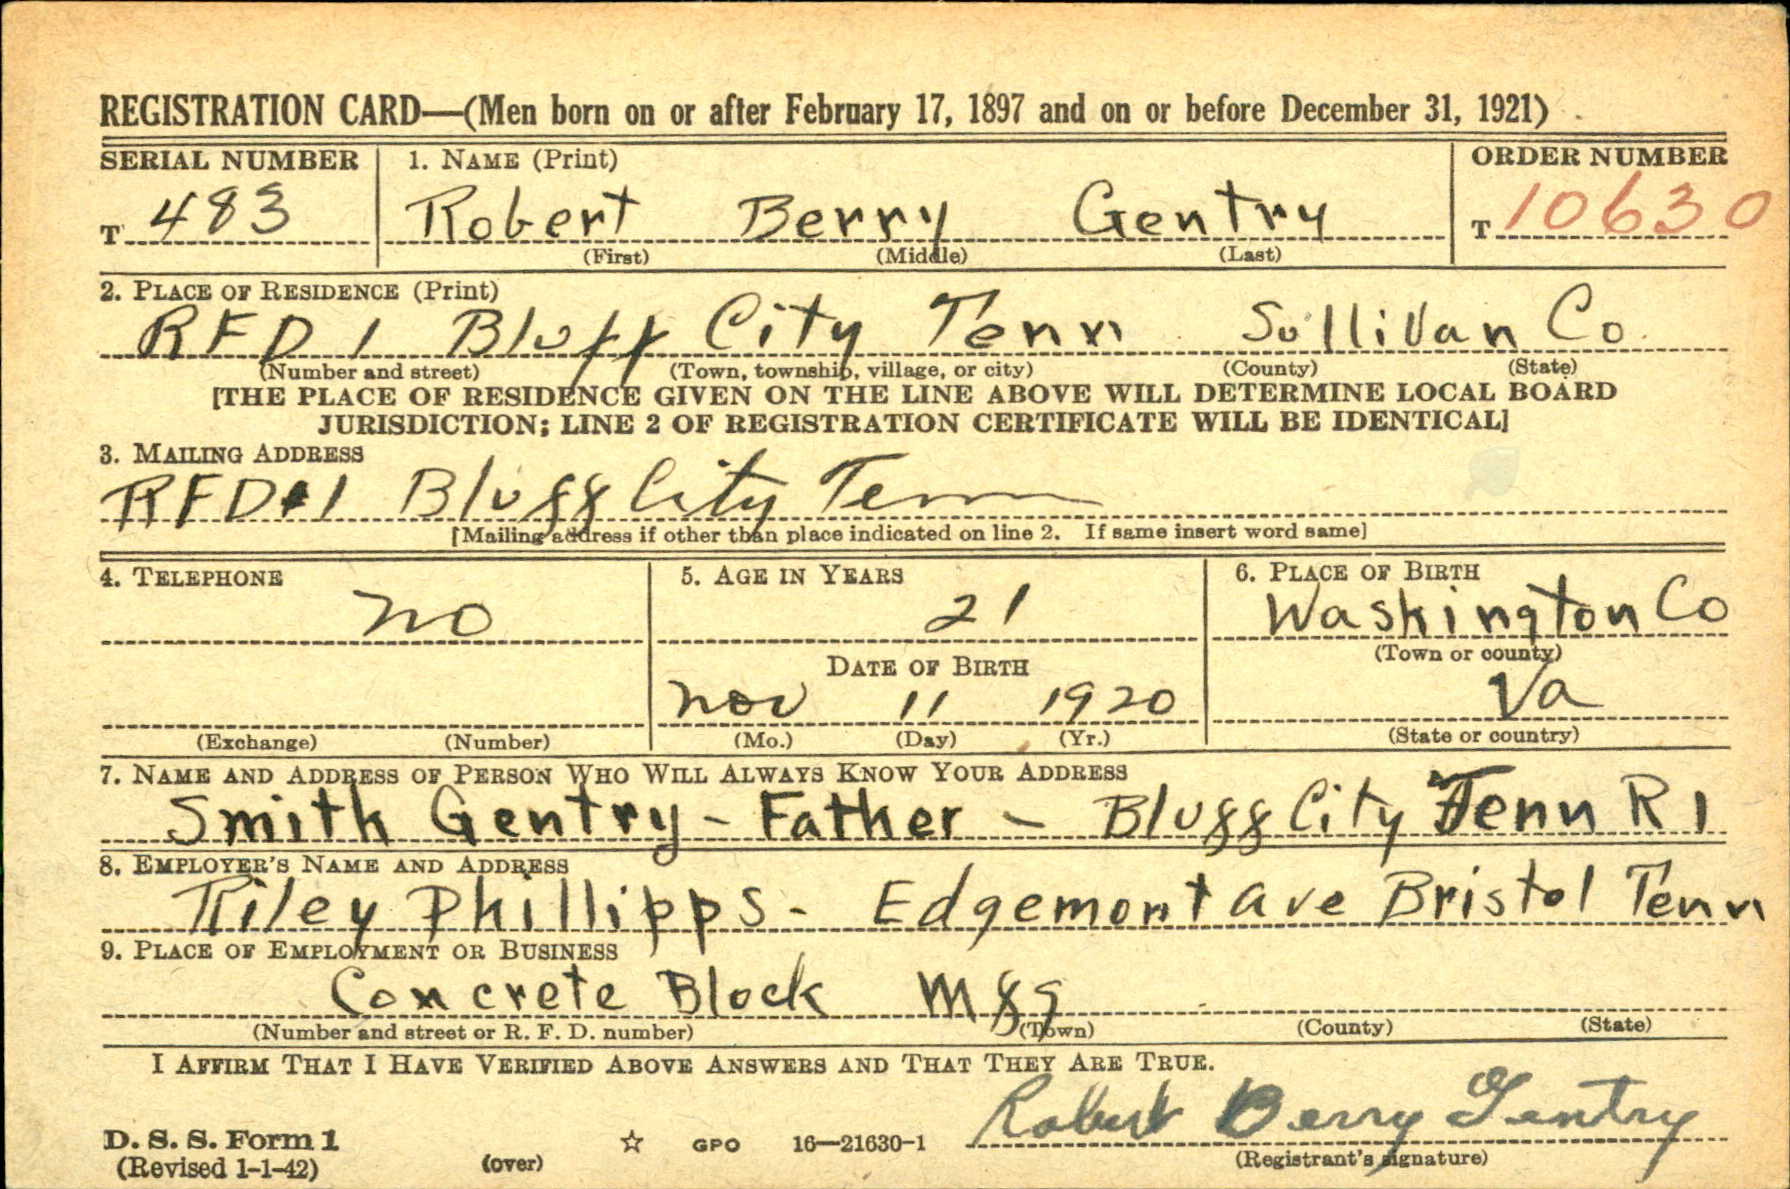 REGISTRATION CARD—(Men born on or after February 17, 1897 and on or before December 31, 1921)
SERIAL NUMBER 1. NAME (Print) ORDER NUMBER
T 483 Robert Berry Gentry T 10630
(First) (Middle) (Last)
2. PLACE OF RESIDENCE (Print)
RFD 1 Bluff City Tenn Sullivan Co
(Number and street) (Town, township, village, or city) (County) (State)
[THE PLACE OF RESIDENCE GIVEN ON THE LINE ABOVE WILL DETERMINE LOCAL BOARD
JURISDICTION; LINE 2 OF REGISTRATION CERTIFICATE WILL BE IDENTICAL]
3. MAILING ADDRESS
RFD #1 Bluff City Tenn
[Mailing address if other than place indicated on line 2. If same insert word same]
4. TELEPHONE 5. AGE IN YEARS 6. PLACE OF BIRTH
no 21 Washington Co
DATE OF BIRTH (Town or county)
Nov 11 1920 Va
(Exchange) (Number) (Mo.) (Day) (Yr.) (State or country)
7. NAME AND ADDRESS OF PERSON WHO WILL ALWAYS KNOW YOUR ADDRESS
Smith Gentry - Father - Bluff City Tenn R 1
8. EMPLOYER'S NAME AND ADDRESS
Riley Phillipps - Edgemont ave Bristol Tenn
9. PLACE OF EMPLOYMENT OR BUSINESS
Concrete Block Mfg
(Number and street or R. F. D. number) (Town) (County) (State)
I AFFIRM THAT I HAVE VERIFIED ABOVE ANSWERS AND THAT THEY ARE TRUE.
Robert Berry Gentry
D. S. S. Form 1 ☆ GPO 16—21630-1
(Revised 1-1-42) (over) (Registrant's signature)